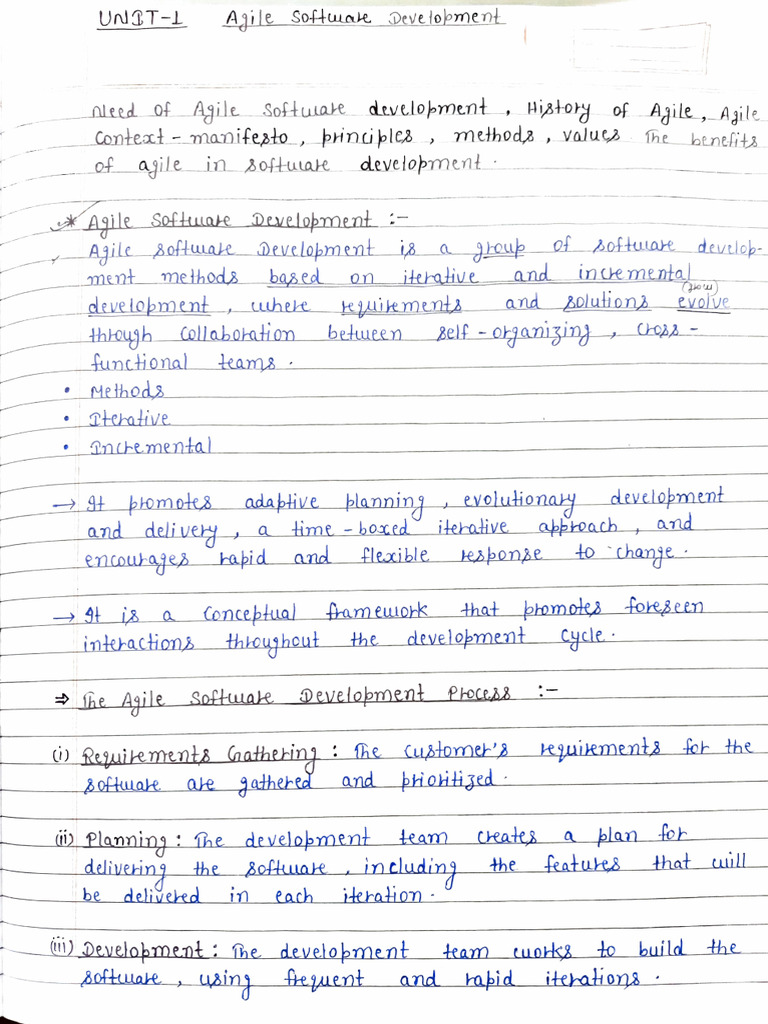 UNIT-1 Agile Software Development
Need of Agile Software development, History of Agile, Agile
Context - manifesto, principles, methods, values The benefits
of agile in software development.
* Agile Software Development :-
Agile Software Development is a group of software develop-
ment methods based on iterative and incremental
(grow)
development, where requirements and solutions evolve
through collaboration between self-organizing, cross-
functional teams.
• Methods
• Iterative
• Incremental
→ It promotes adaptive planning, evolutionary development
and delivery, a time-boxed iterative approach, and
encourages rapid and flexible response to change.
→ It is a conceptual framework that promotes foreseen
interactions throughout the development cycle.
⇒ The Agile Software Development Process :-
(i) Requirements Gathering : The customer's requirements for the
software are gathered and prioritized.
(ii) Planning : The development team creates a plan for
delivering the software, including the features that will
be delivered in each iteration.
(iii) Development : The development team works to build the
software, using frequent and rapid iterations.